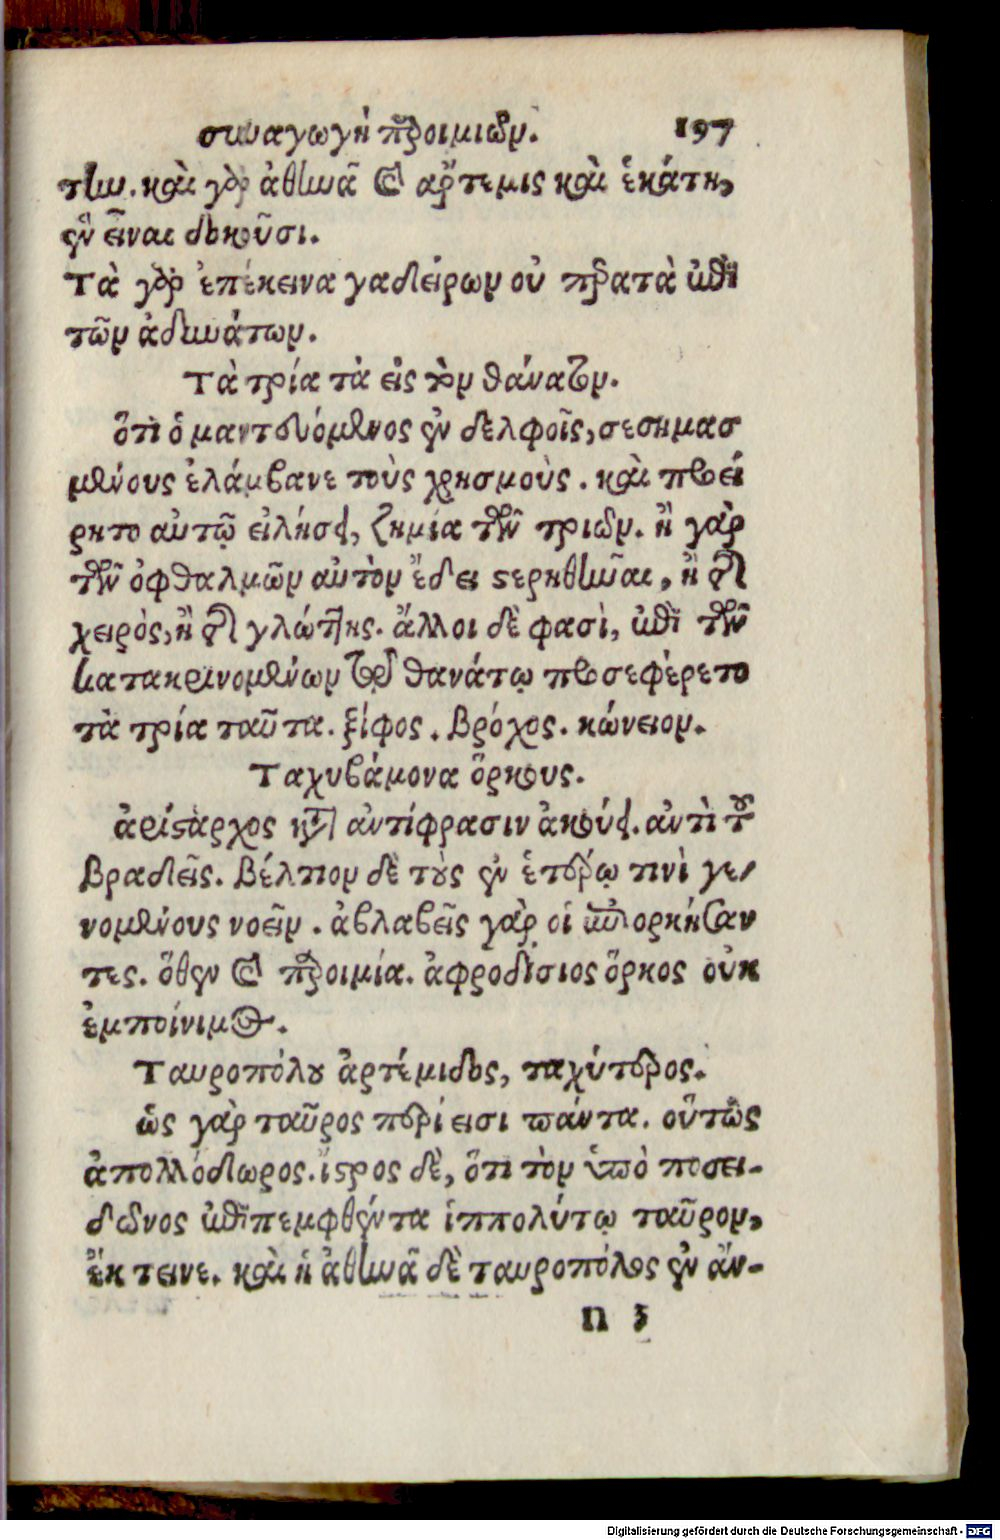 συναγωγὴ παροιμιῶν. 197
την. καὶ γὰρ ἀθηνᾶ καὶ ἄρτεμις καὶ ἑκάτη,
ἓν εἶναι δοκοῦσι.
Τὰ γὰρ ἐπέκεινα γαδείρων οὐ περατὰ ἐπὶ
τῶν ἀδυνάτων.
Τὰ τρία τὰ εἰς τὸν θάνατον.
ὅτι ὁ μαντευόμενος ἐν δελφοῖς, σεσημασ
μένους ἐλάμβανε τοὺς χρησμοὺς. καὶ προεί
ρητο αὐτῷ εἰ λήσει, ζημία τῶν τριῶν. ἢ γὰρ
τῶν ὀφθαλμῶν αὐτὸν ἔδει στερηθῆναι, ἢ τῆς
χειρὸς, ἢ τῆς γλώττης. ἄλλοι δὲ φασὶ, ἐπὶ τῶν
κατακρινομένων τῷ θανάτῳ προσεφέρετο
τὰ τρία ταῦτα. ξίφος. βρόχος. κώνειον.
Ταχυβάμονα ὅρκους.
ἀρίσταρχος κατ' ἀντίφρασιν ἀκούει. ἀντὶ τοῦ
βραδεῖς. βέλτιον δὲ τοὺς ἐν ἑτέρῳ τινὶ γε-
νομένους νοεῖν. ἀβλαβεῖς γὰρ οἱ ἐπιορκήσαν
τες. ὅθεν καὶ παροιμία. ἀφροδίσιος ὅρκος οὐκ
ἐμποίνιμος.
Ταυροπόλου ἀρτέμιδος, ταχύτερος.
ὡς γὰρ ταῦρος περίεισι πάντα. οὕτως
ἀπολλόδωρος. ἴστρος δὲ, ὅτι τὸν ὑπὸ ποσει-
δῶνος ἐπιπεμφθέντα ἱππολύτῳ ταῦρον,
ἔκτεινε. καὶ ἡ ἀθηνᾶ δὲ ταυροπόλος ἐν ἄν-
n 3
Digitalisierung gefördert durch die Deutsche Forschungsgemeinschaft - DFG